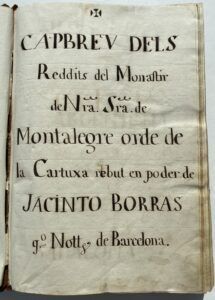 CAPBREV DELS
Reddits del Monastir
de Nra. Sra. de
Montalegre orde de
la Cartuxa rebut en poder de
JACINTO BORRAS
q.º Nott.s de Barcelona.